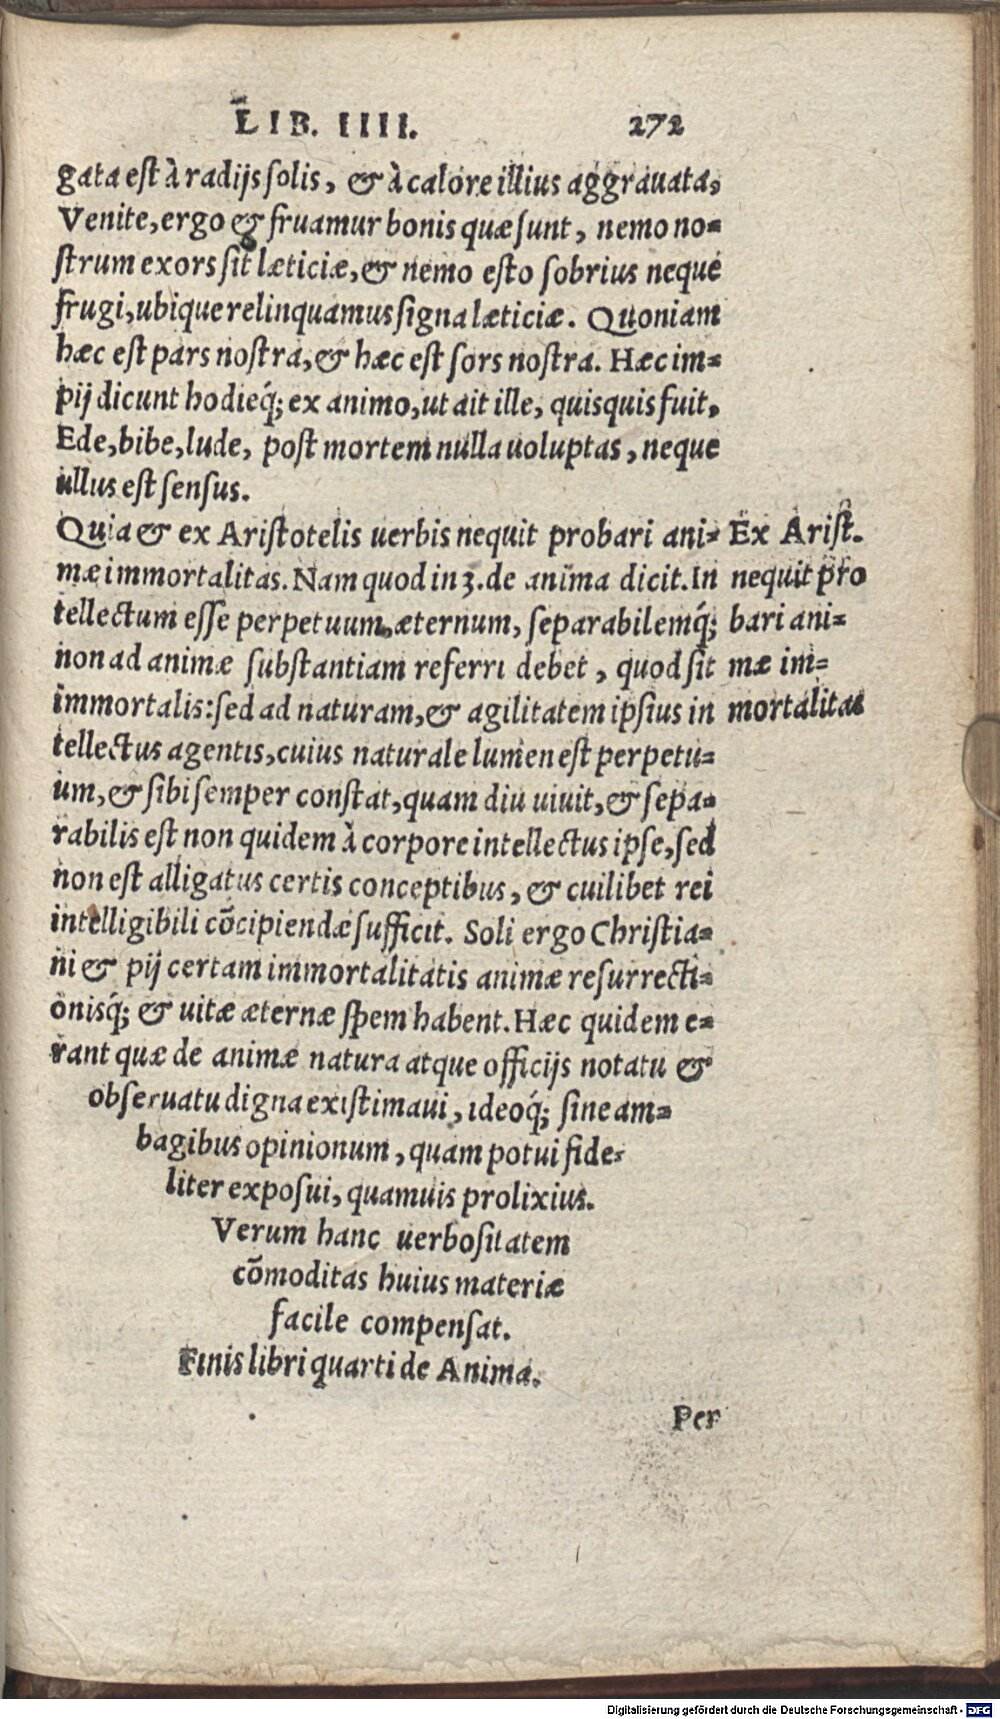 LIB. IIII. 272
gata est à radijs solis, & à calore illius aggrauata,
Venite, ergo & fruamur bonis quæ sunt, nemo no=
strum exors sit læticiæ, & nemo esto sobrius neque
frugi, ubique relinquamus signa læticiæ. Quoniam
hæc est pars nostra, & hæc est sors nostra. Hæc im=
pij dicunt hodieq́; ex animo, ut ait ille, quisquis fuit,
Ede, bibe, lude, post mortem nulla uoluptas, neque
ullus est sensus.
Quia & ex Aristotelis uerbis nequit probari ani=
mæ immortalitas. Nam quod in 3. de anima dicit. In
tellectum esse perpetuum, æternum, separabilemq́;
non ad animæ substantiam referri debet, quod sit
immortalis: sed ad naturam, & agilitatem ipsius in
tellectus agentis, cuius naturale lumen est perpetu=
um, & sibi semper constat, quam diu uiuit, & sepa=
rabilis est non quidem à corpore intellectus ipse, sed
non est alligatus certis conceptibus, & cuilibet rei
intelligibili cõcipiendæ sufficit. Soli ergo Christia=
ni & pij certam immortalitatis animæ resurrecti=
onisq́; & uitæ æternæ spem habent. Hæc quidem e=
rant quæ de animæ natura atque officijs notatu &
obseruatu digna existimaui, ideoq́; sine am=
bagibus opinionum, quam potui fide=
liter exposui, quamuis prolixius.
Verum hanc uerbositatem
cõmoditas huius materiæ
facile compensat.
Finis libri quarti de Anima.
Per
Ex Arist.
nequit pro
bari ani=
mæ im=
mortalitas
Digitalisierung gefördert durch die Deutsche Forschungsgemeinschaft - DFG